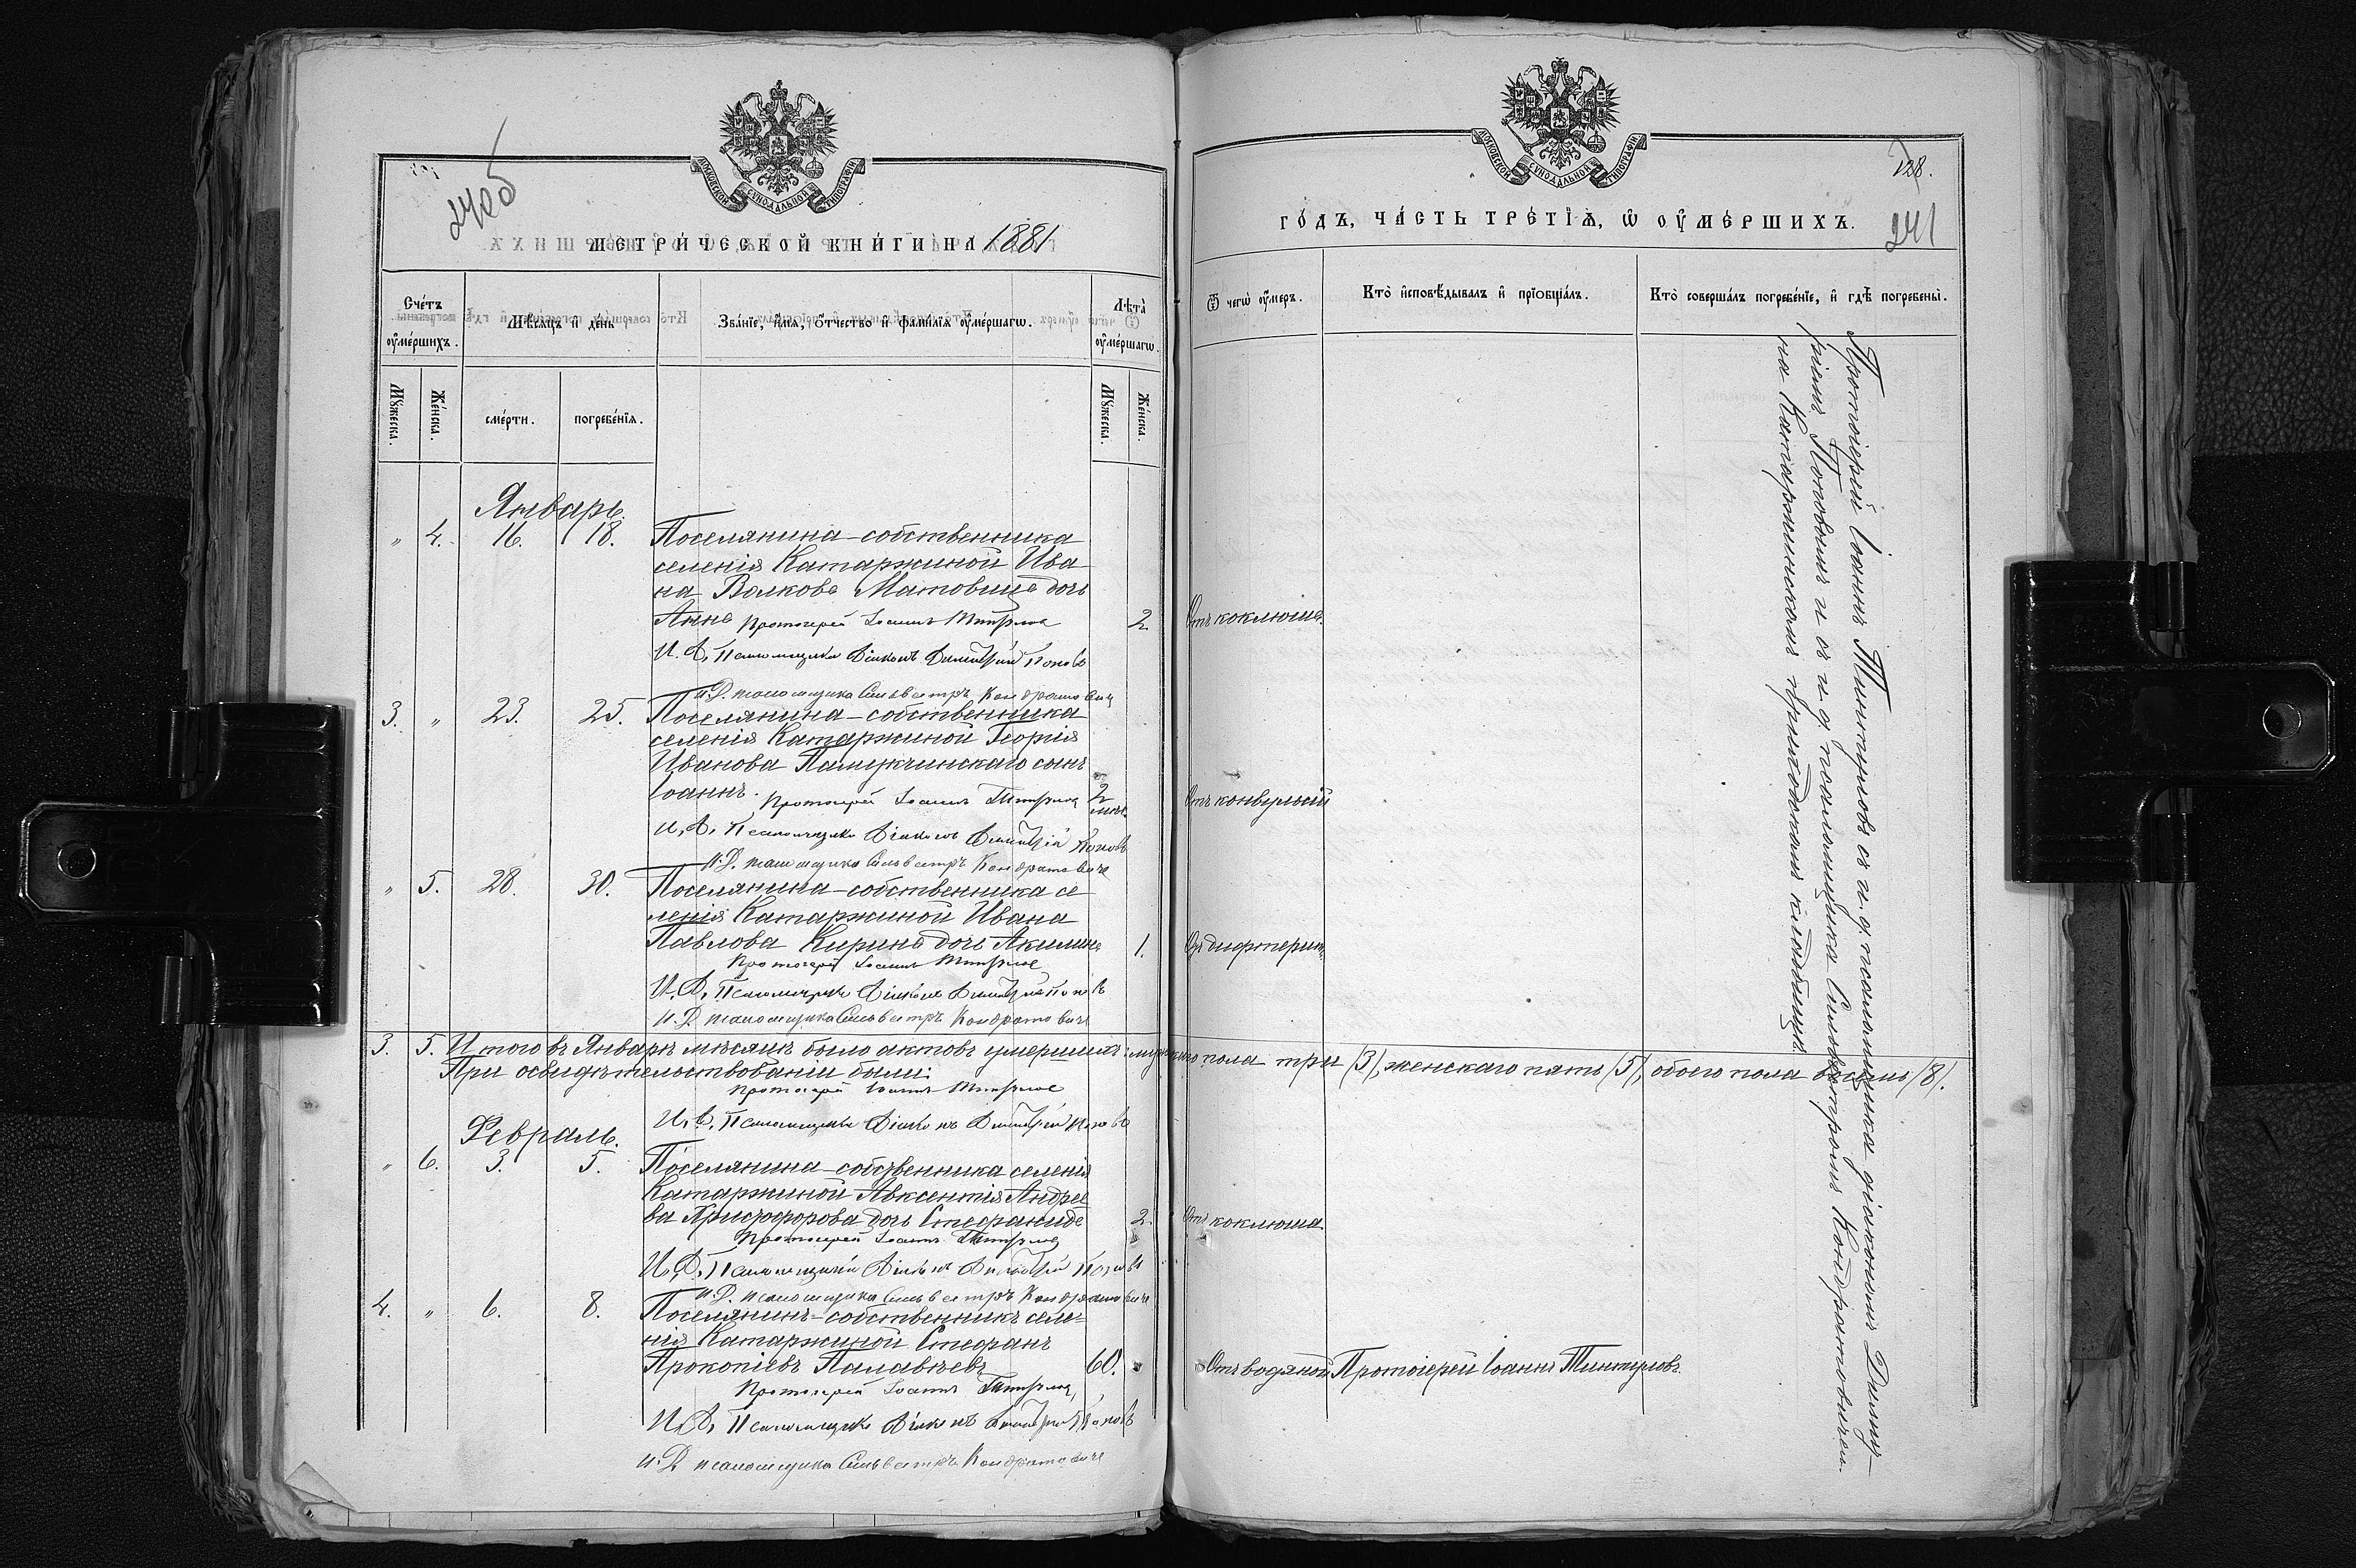 МОСКОВСКОЙ СѴНОДАЛЬНОЙ ТИПОГРАФІИ
240об
МЕТРИ́ЧЕСКОЙ КНИ́ГИ НА 1881
Сче́тъ ᲂу҆ме́ршихъ.
Мѣ́сѧцъ и҆ де́нь
Зва́нїе, и҆́мѧ, ѻ҆́тчество и҆ фами́лїѧ ᲂу҆ме́ршагѡ.
Лѣ̑та ᲂу҆ме́ршагѡ.
Мꙋ́жеска.
Же́нска.
сме́рти.
погребе́нїѧ.
Мꙋ́жеска.
Же́нска.
Январь.
" 4. 16. 18. Поселянина-собственника
селенія Катаржиной Ива
на Волкова Матовица дочь
Анна Протоіерей Іоаннъ Тинтуловъ 2
И. Д. Псаломщика Діаконъ Димитрій Поповъ
И. Д. псаломщика Сильвестръ Кондратовичъ
3. " 23. 25. Поселянина-собственника
селенія Катаржиной Георгія
Иванова Памукчинскаго сынъ
Іоаннъ. Протоіерей Іоаннъ Тинтуловъ 2
И. Д. Псаломщика Діаконъ Димитрій Поповъ
И. Д. псаломщика Сильвестръ Кондратовичъ
" 5. 28. 30. Поселянина-собственника се
ленія Катаржиной Ивана
Павлова Кирина дочь Акилина 1.
Протоіерей Іоаннъ Тинтуловъ
И. Д. Псаломщика Діаконъ Димитрій Поповъ
И. Д. псаломщика Сильвестръ Кондратовичъ
3. 5. Итого въ Январѣ мѣсяцѣ было актовъ умершихъ: мужскаго пола три /3/, женскаго пять /5/, обоего пола восемь /8/.
При освидѣтельствованіи были:
Протоіерей Іоаннъ Тинтуловъ
И. Д. Псаломщика Діаконъ Димитрій Поповъ
Февраль.
" 6. 3. 5. Поселянина-собственника селенія
Катаржиной Авксентія Андрее
ва Христофорова дочь Стефанида 2.
Протоіерей Іоаннъ Тинтуловъ
И. Д. Псаломщика Діаконъ Димитрій Поповъ
И. Д. псаломщика Сильвестръ Кондратовичъ
4. " 6. 8. Поселянинъ-собственникъ селе=
нія Катаржиной Стефанъ
Прокопіевъ Палавѣевъ 60.
Протоіерей Іоаннъ Тинтуловъ
И. Д. Псаломщика Діаконъ Димитрій Поповъ
И. Д. псаломщика Сильвестръ Кондратовичъ
МОСКОВСКОЙ СѴНОДАЛЬНОЙ ТИПОГРАФІИ
128.
241
ГО́ДЪ, ЧА́СТЬ ТРЕ́ТЇѦ, Ѡ҆ ОУ҆МЕ́РШИХЪ.
Ѿ чегѡ̀ ᲂу҆́меръ.
Кто̀ и҆сповѣ́дывалъ и҆ прїѡбща́лъ.
Кто̀ соверша́лъ погребе́нїе, и҆ гдѣ̀ погребены̀.
Отъ коклюша.
Отъ конвульсій
Отъ дифтерита.
Отъ коклюша
Отъ водяной Протоіерей Іоаннъ Тинтуловъ.
Протоіерей Іоаннъ Тинтуловъ съ и. д. псаломщика діакономъ Димит-
ріемъ Поповымъ и съ и. д. псаломщика Сильвестромъ Кондратовичем.
на Катаржинскомъ приходскомъ кладбищѣ.